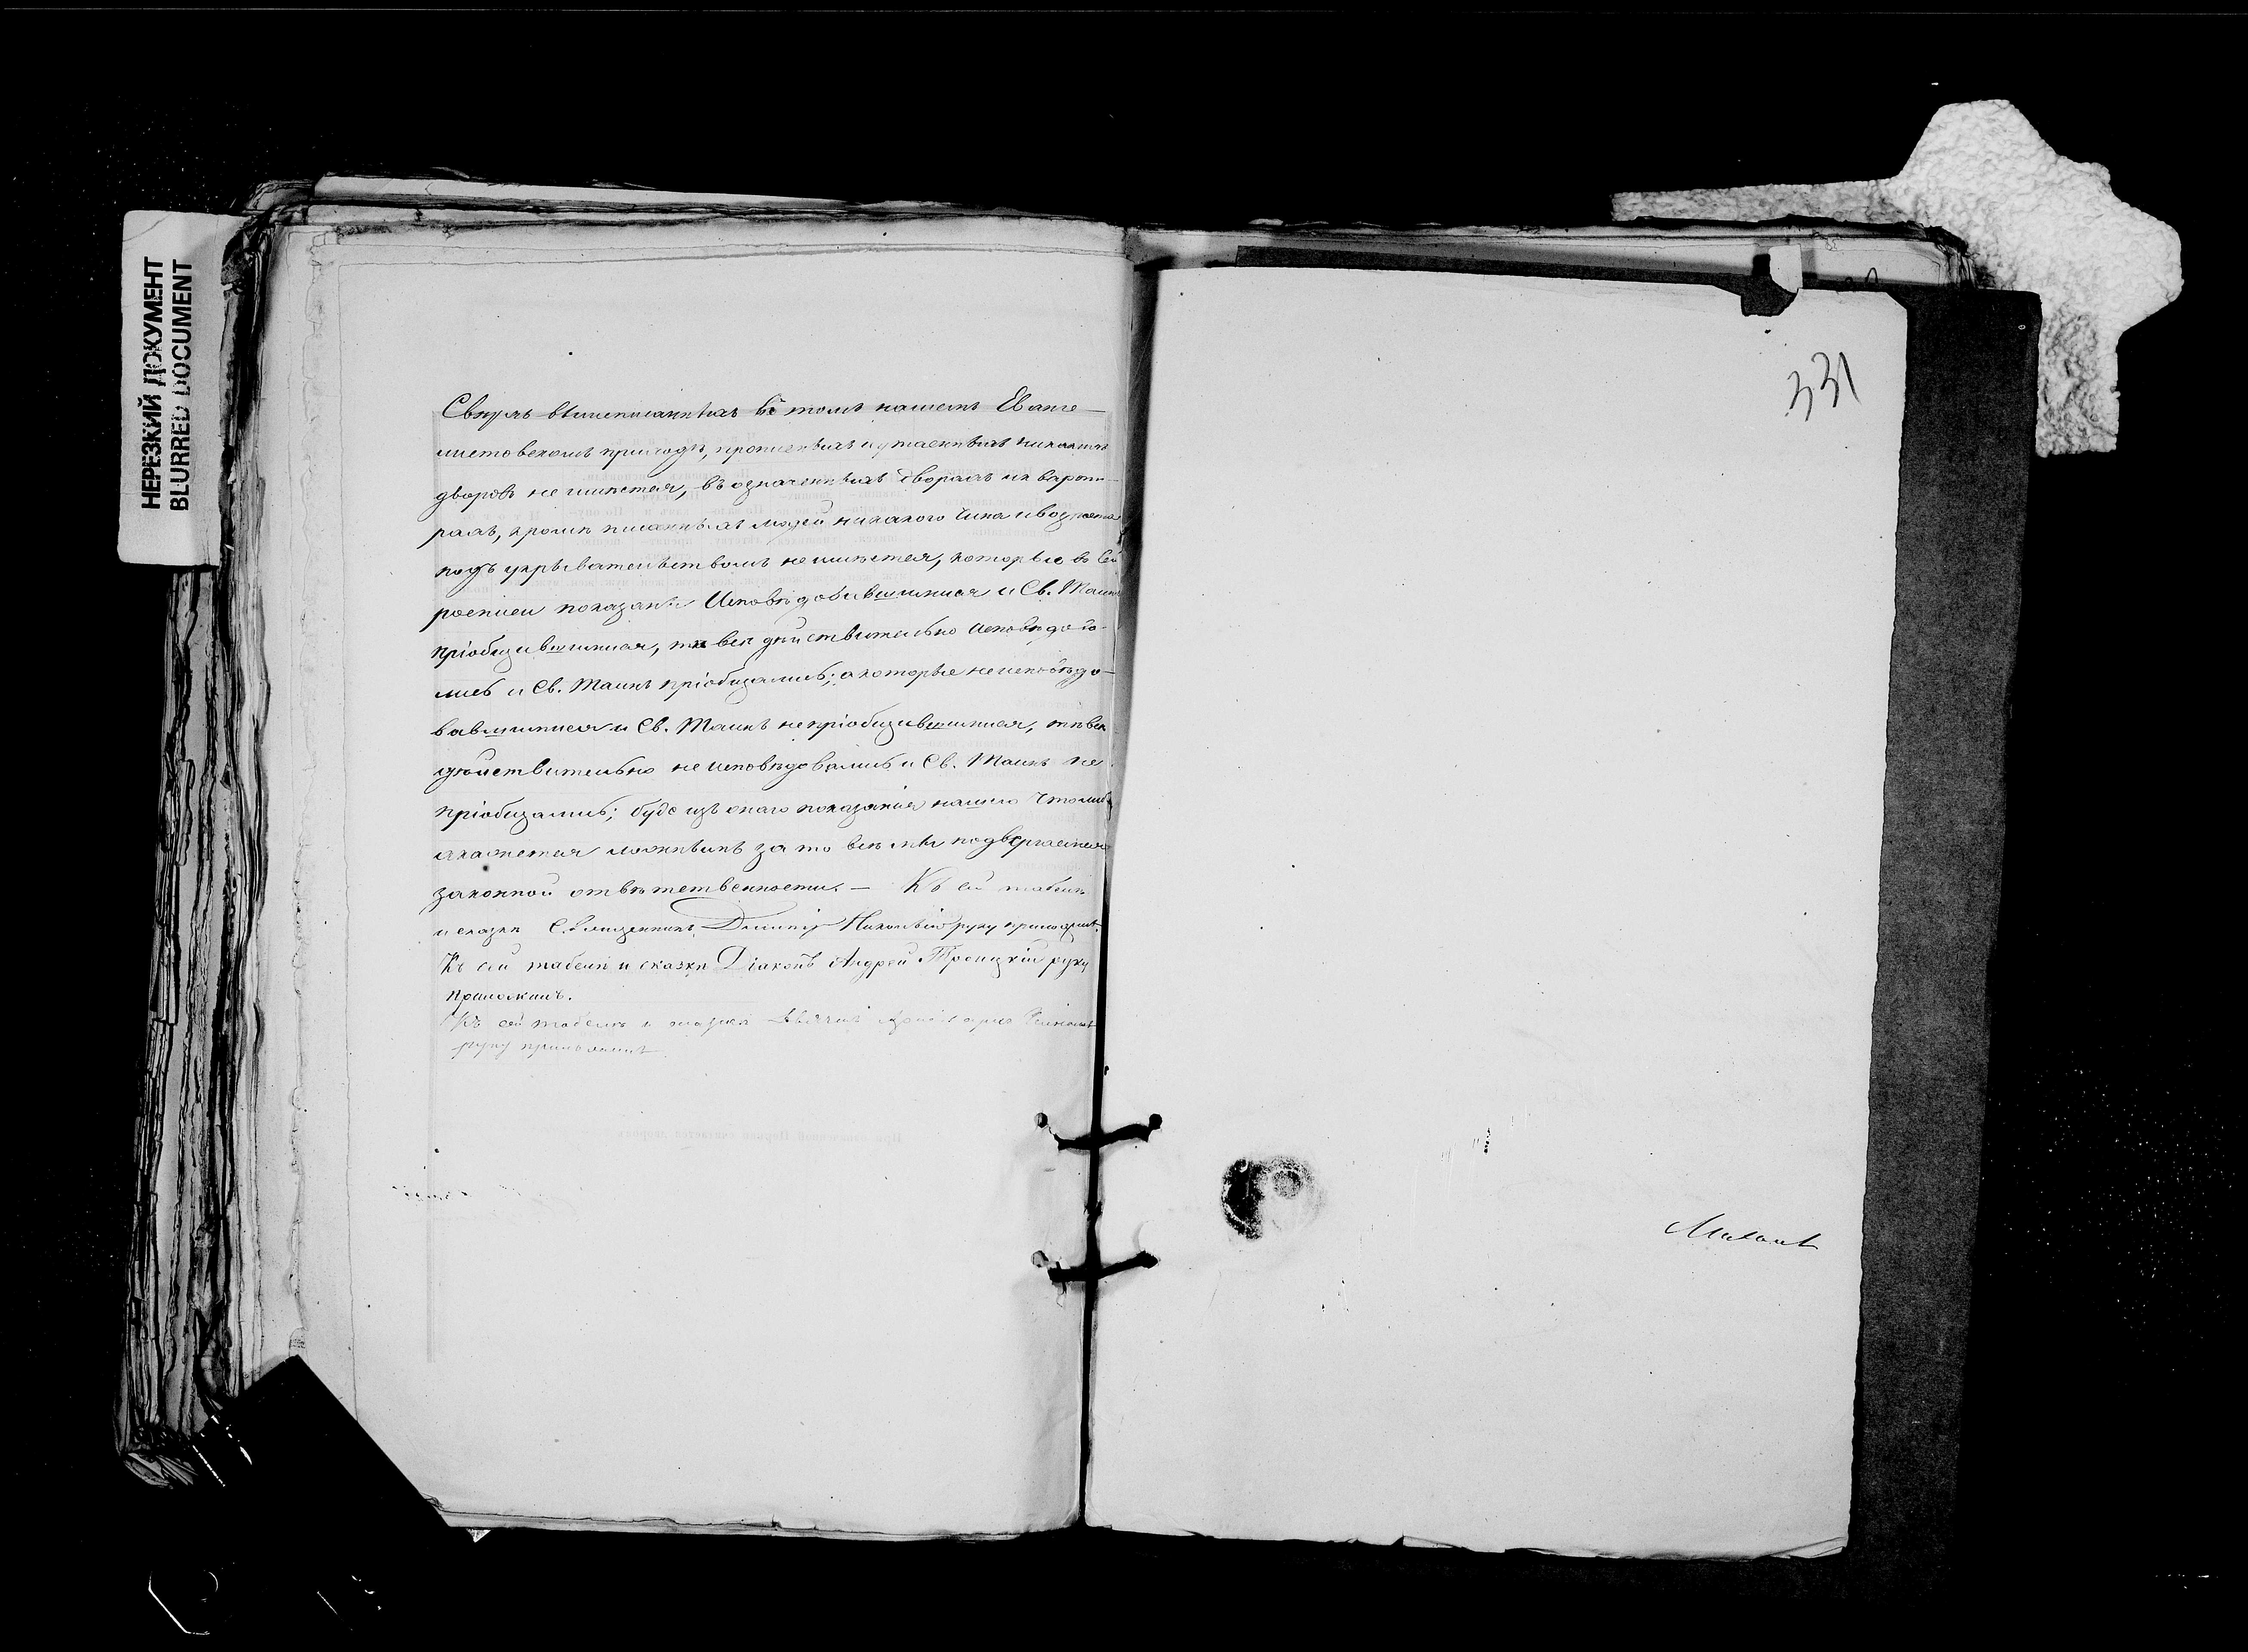 НЕРЕЗКИЙ ДОКУМЕНТ
BLURRED DOCUMENT
вышеписанныхъ въ томъ нашемъ Еванге-
листовскомъ приходѣ, прописныхъ и утаенныхъ никакихъ
дворовъ не имѣется, въ означенныхъ дворахъ и квартѝ-
рахъ, кромѣ писанныхъ людей никакого чина и возраста
подъ укрывательствомъ не имѣется, которые въ сей
росписи показаны Исповѣдовавшимися и Св. Таинъ
пріобщившимися, тѣ всѣ дѣйствительно исповѣдова-
лись и Св. Таинъ пріобщались; а которые не исповѣдо-
вавшимися и Св. Таинъ не пріобщившимися, тѣ всѣ
дѣйствительно не исповѣдовались и Св. Таинъ не
пріобщались; буде изъ онаго показанія нашего что либо
окажется ложнымъ за то всѣ мы подвергаемся
законной отвѣтственности. — Къ сей табели
и сказкѣ Священникъ Димитрій Никольскій руку приложилъ.
Къ сей табели и сказкѣ Діаконъ Андрей Троицкій руку
приложилъ.
Къ сей табели и сказкѣ Дьячекъ
руку приложилъ.
331